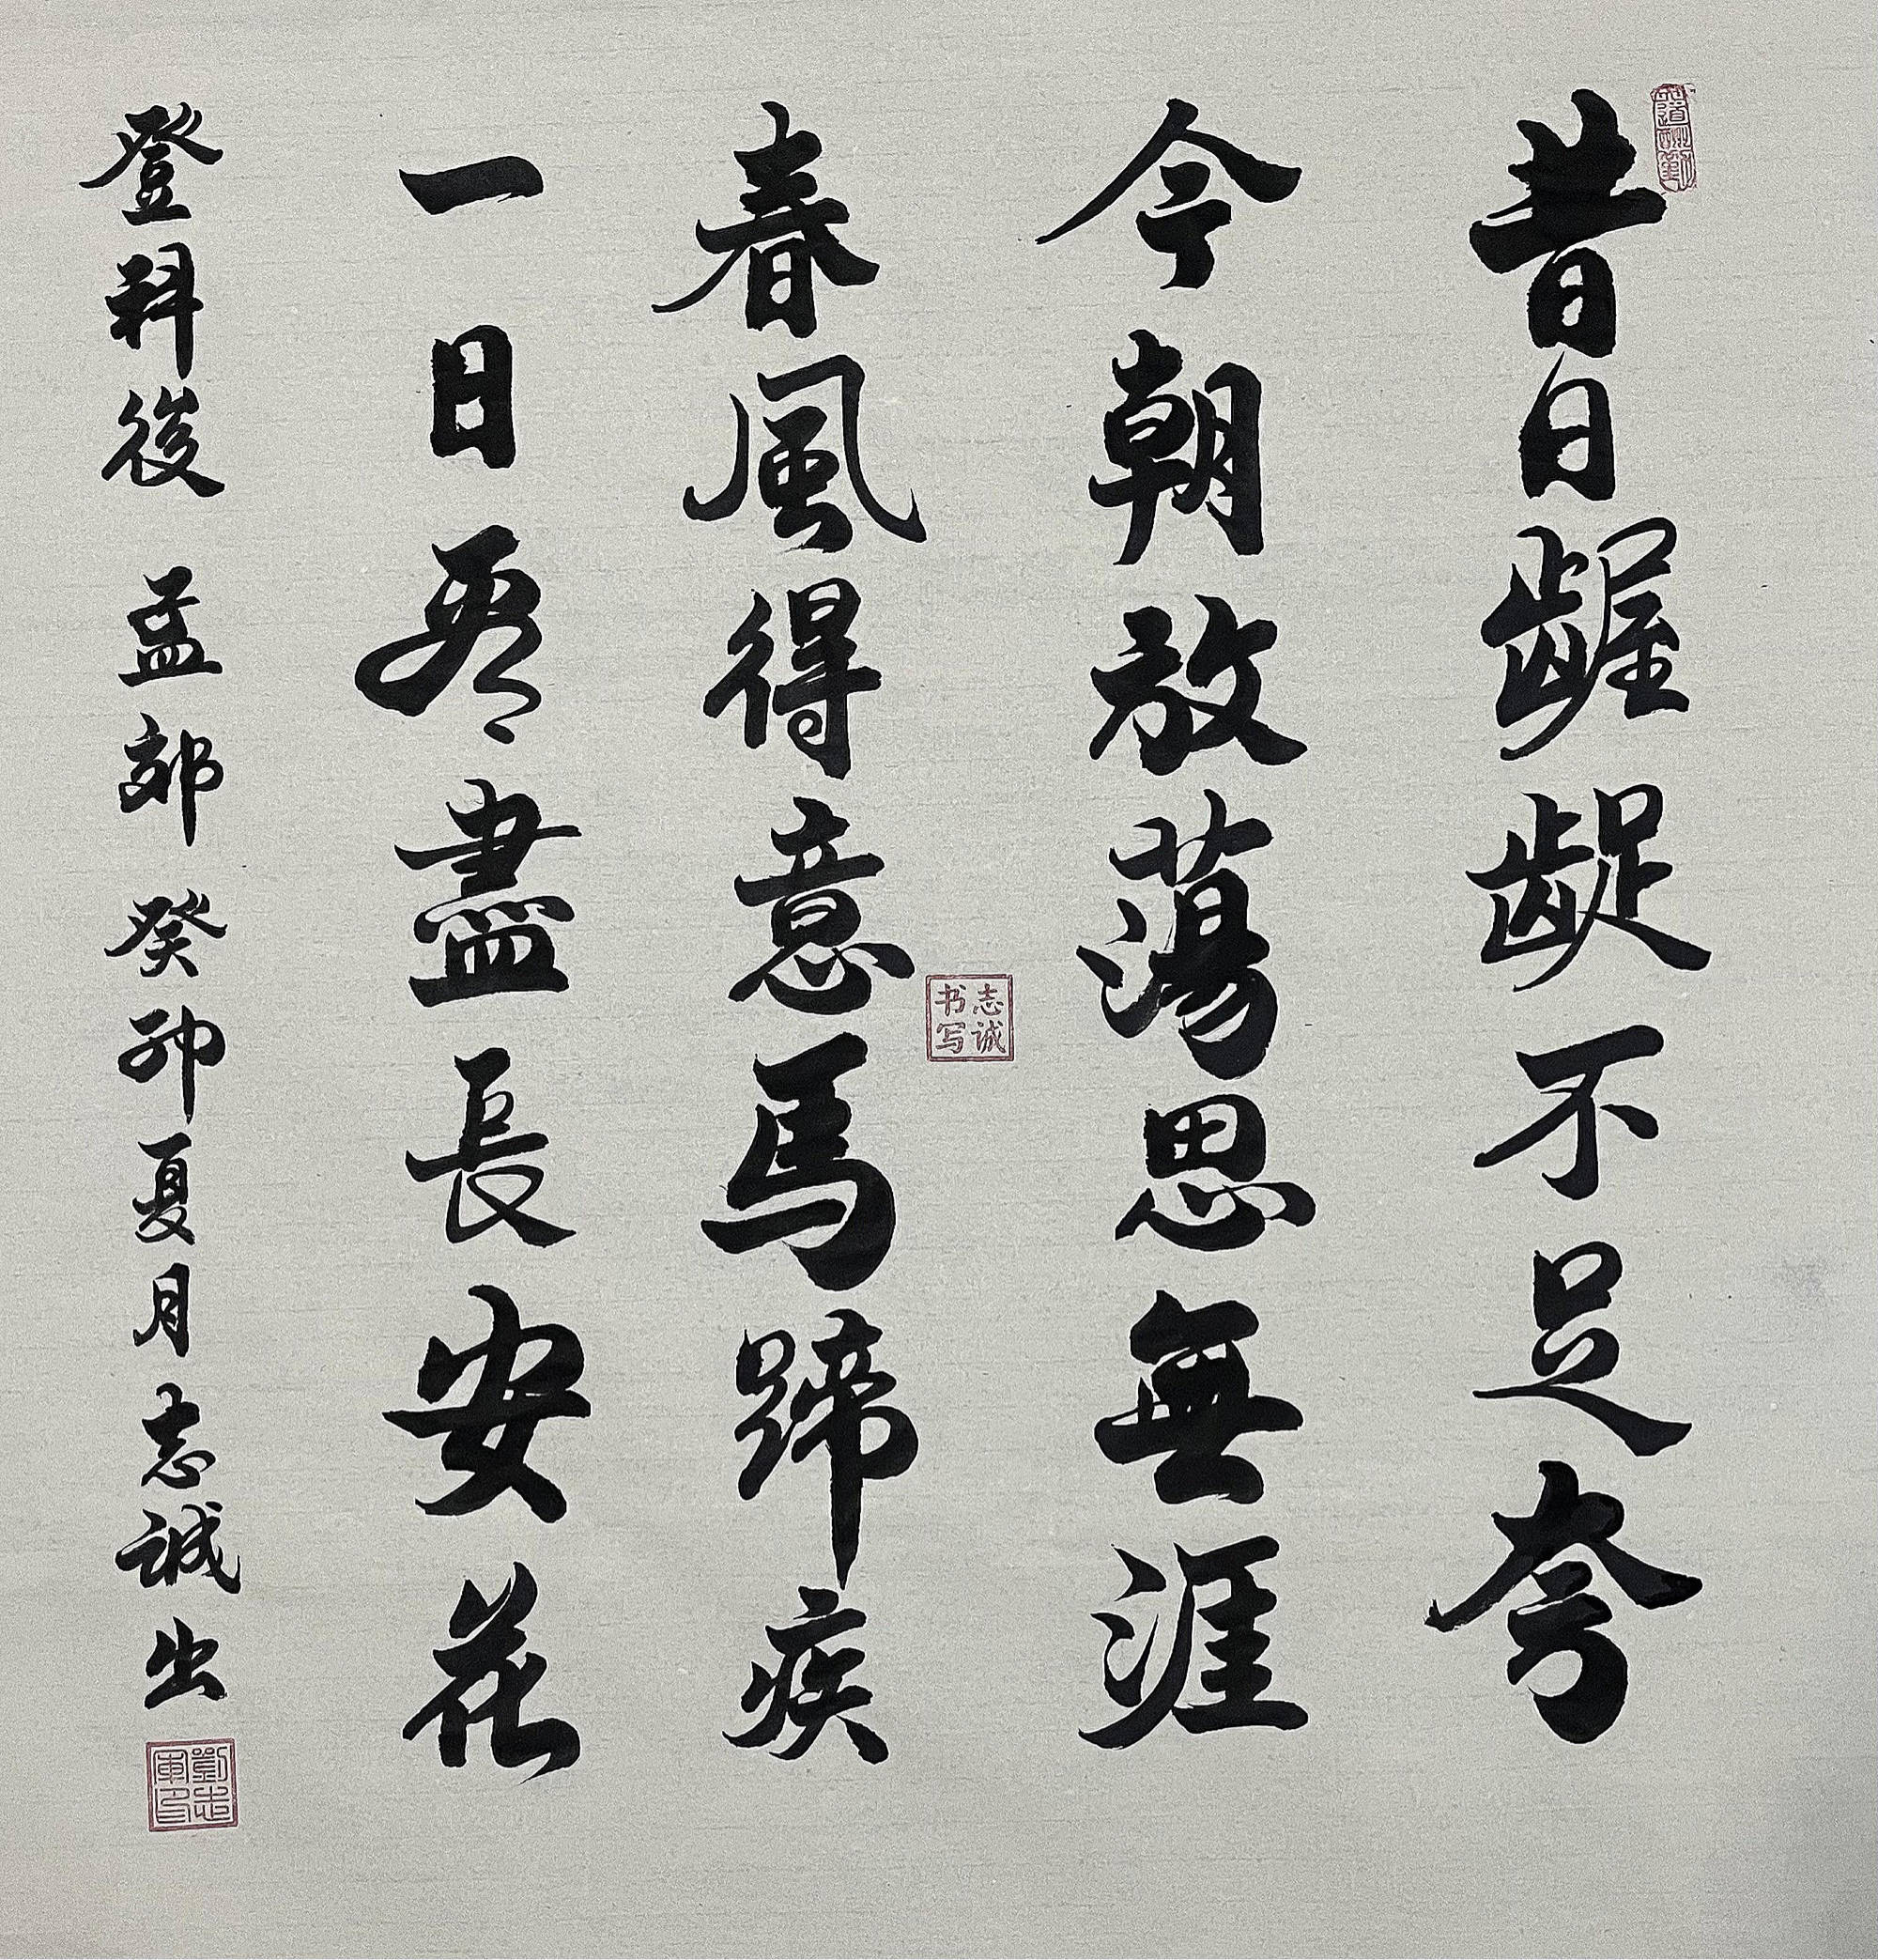 天道酬勤
昔日齷齪不足夸
今朝放蕩思無涯
春風得意馬蹄疾
一日看盡長安花
登科後 孟郊 癸卯夏月志誠出
志诚书写